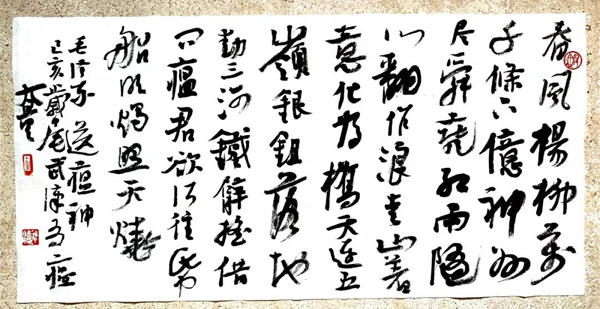 春風楊柳萬
千條六億神州
尽舜堯紅雨隨
心翻作浪青山着
意化为橋天连五
嶺銀鉏落地
動三河鐵臂摇借
問瘟君欲何往紙
船明燭照天燒
毛泽东送瘟神
己亥歲尾武漢瘟